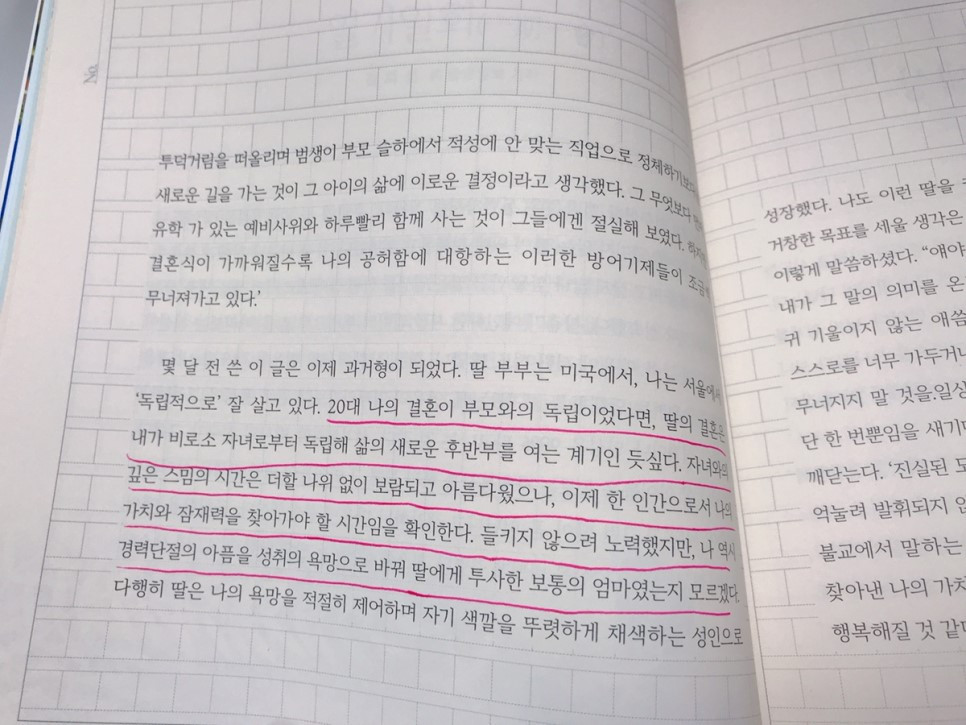 No.
투덕거림을 떠올리며 범생이 부모 슬하에서 적성에 안 맞는 직업으로 정체하기보다
새로운 길을 가는 것이 그 아이의 삶에 이로운 결정이라고 생각했다. 그 무엇보다
유학 가 있는 예비사위와 하루빨리 함께 사는 것이 그들에겐 절실해 보였다.
결혼식이 가까워질수록 나의 공허함에 대항하는 이러한 방어기제들이
무너져가고 있다.’
몇 달 전 쓴 이 글은 이제 과거형이 되었다. 딸 부부는 미국에서, 나는 서울에서
‘독립적으로’ 잘 살고 있다. 20대 나의 결혼이 부모와의 독립이었다면, 딸의 결혼은
내가 비로소 자녀로부터 독립해 삶의 새로운 후반부를 여는 계기인 듯싶다. 자녀와의
깊은 스밈의 시간은 더할 나위 없이 보람되고 아름다웠으나, 이제 한 인간으로서 나의
가치와 잠재력을 찾아가야 할 시간임을 확인한다. 들키지 않으려 노력했지만, 나 역시
경력단절의 아픔을 성취의 욕망으로 바꿔 딸에게 투사한 보통의 엄마였는지 모르겠다.
다행히 딸은 나의 욕망을 적절히 제어하며 자기 색깔을 뚜렷하게 채색하는 성인으로
성장했다. 나도 이런 딸을
거창한 목표를 세울 생각은
이렇게 말씀하셨다. “얘야
내가 그 말의 의미를 온
귀 기울이지 않는 애씀
스스로를 너무 가두거나
무너지지 말 것을.일상
단 한 번뿐임을 새기며
깨닫는다. ‘진실된
억눌려 발휘되지
불교에서 말하는
찾아낸 나의 가치
행복해질 것 같